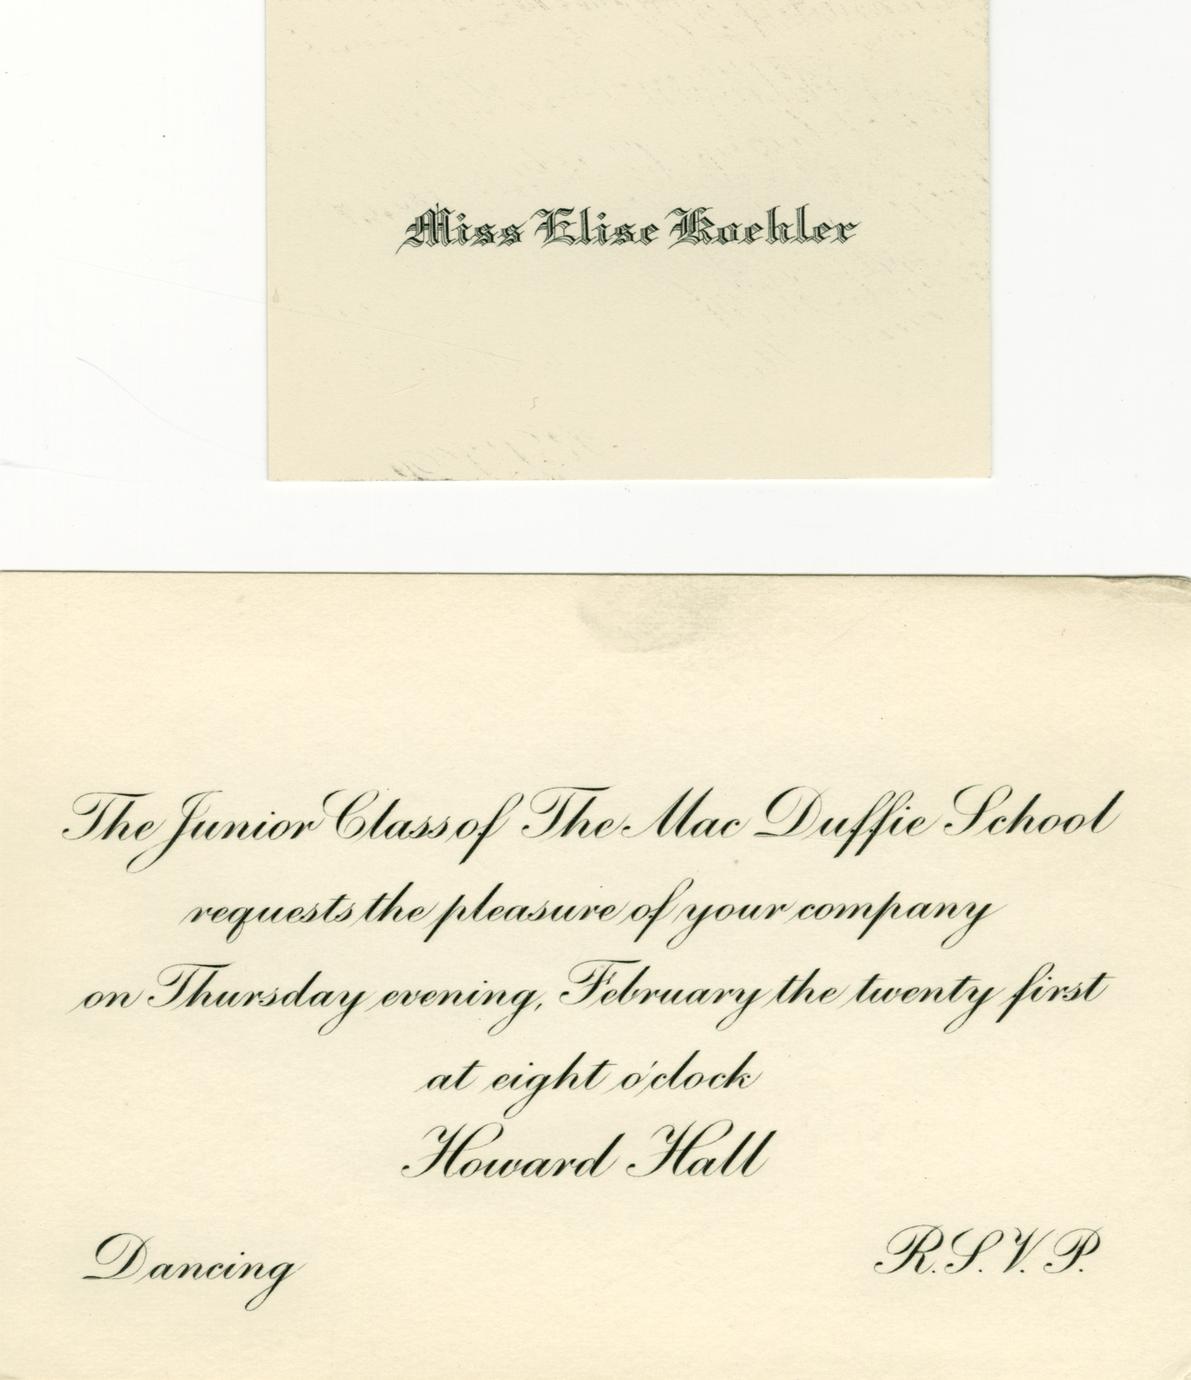 Miss Elise Koehler
The Junior Class of The Mac Duffie School
requests the pleasure of your company
on Thursday evening, February the twenty first
at eight o'clock
Howard Hall
Dancing
R.S.V.P.